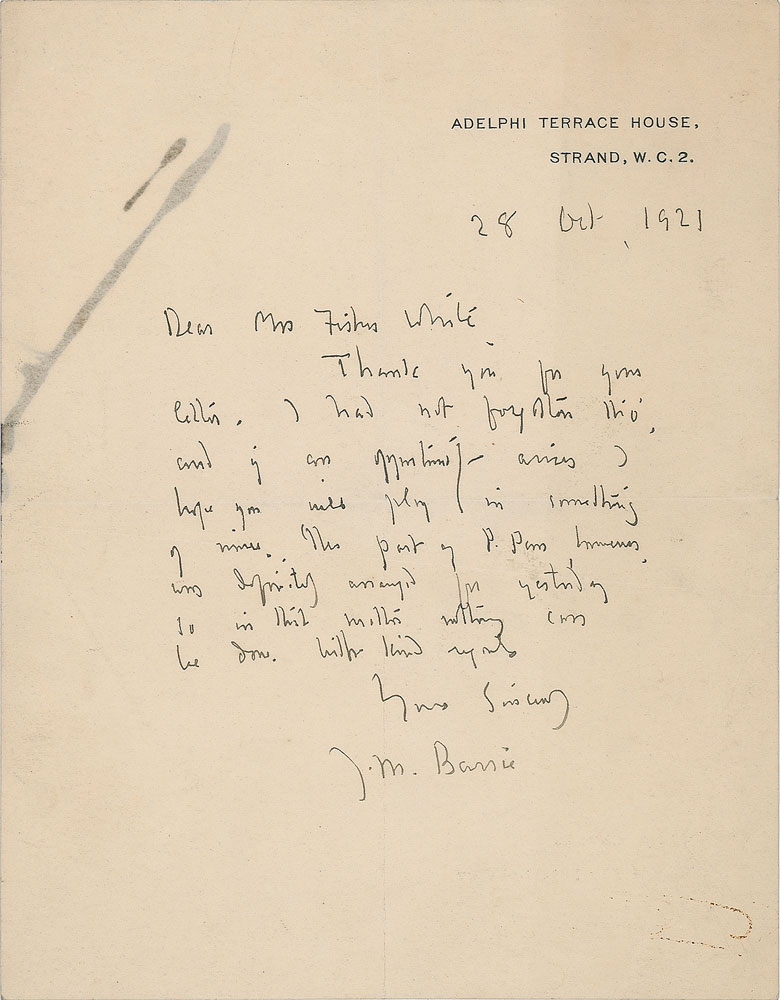 ADELPHI TERRACE HOUSE,
STRAND, W. C. 2.
28 Oct, 1921
Dear Mrs Fisher White
Thank you for your
letter. I had not forgotten this,
and if an opportunity arises I
hope you will play in something
of mine. The part of P. Pan, however,
was definitely arranged for yesterday
so in that matter nothing can
be done. With kind regards
Yours Sincerely
J. M. Barrie